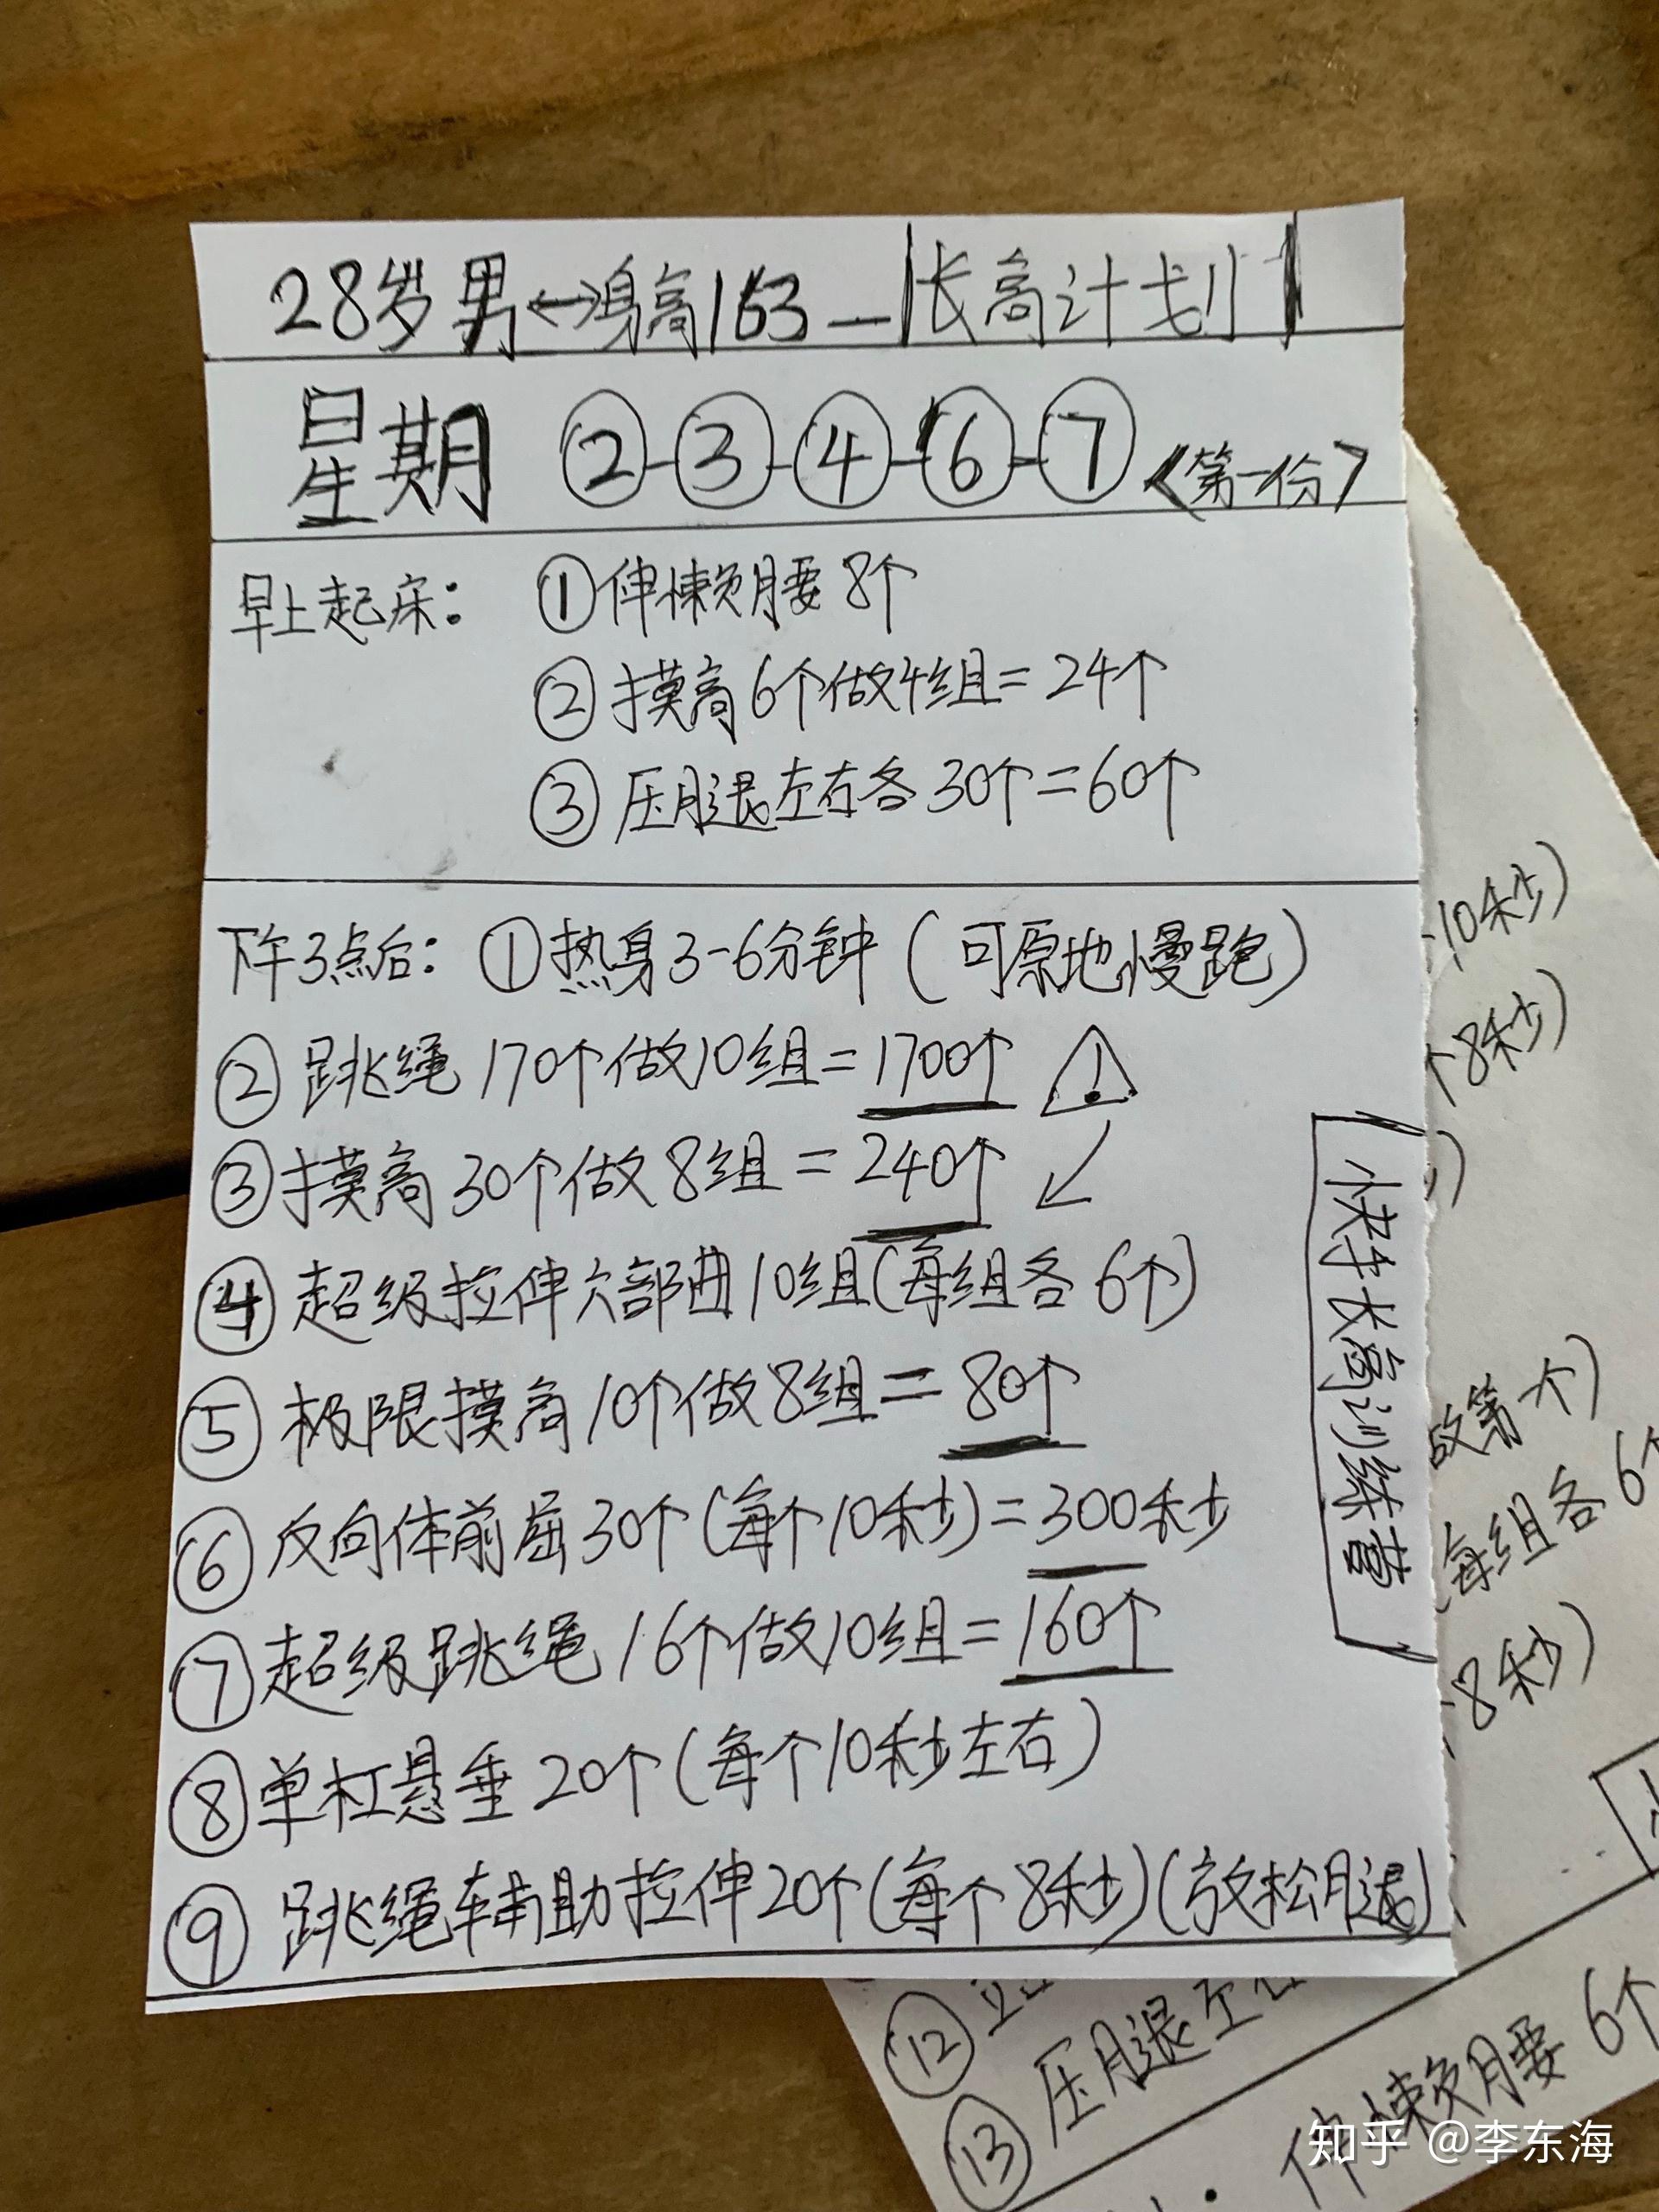 28岁男↔身高163—长高计划
星期 ②-③-④-⑥-⑦《第一份》
早上起床: ①伸懒腰8个
②摸高6个做4组=24个
③压腿左右各30个=60个
下午3点后: ①热身3-6分钟(可原地慢跑)
②跳绳170个做10组=1700个
③摸高30个做8组=240个
④超级拉伸六部曲10组(每组各6个)
⑤极限摸高10个做8组=80个
⑥反向体前屈30个(每个10秒)=300秒
⑦超级跳绳16个做10组=160个
⑧单杠悬垂20个(每个10秒左右)
⑨跳绳辅助拉伸20个(每个8秒)(放松腿)
快手长高训练营
10秒)
个8秒)
做第一个)
(每组各6个
8秒)
⑫
⑬压腿左右
伸懒腰6个
知乎 @李东海